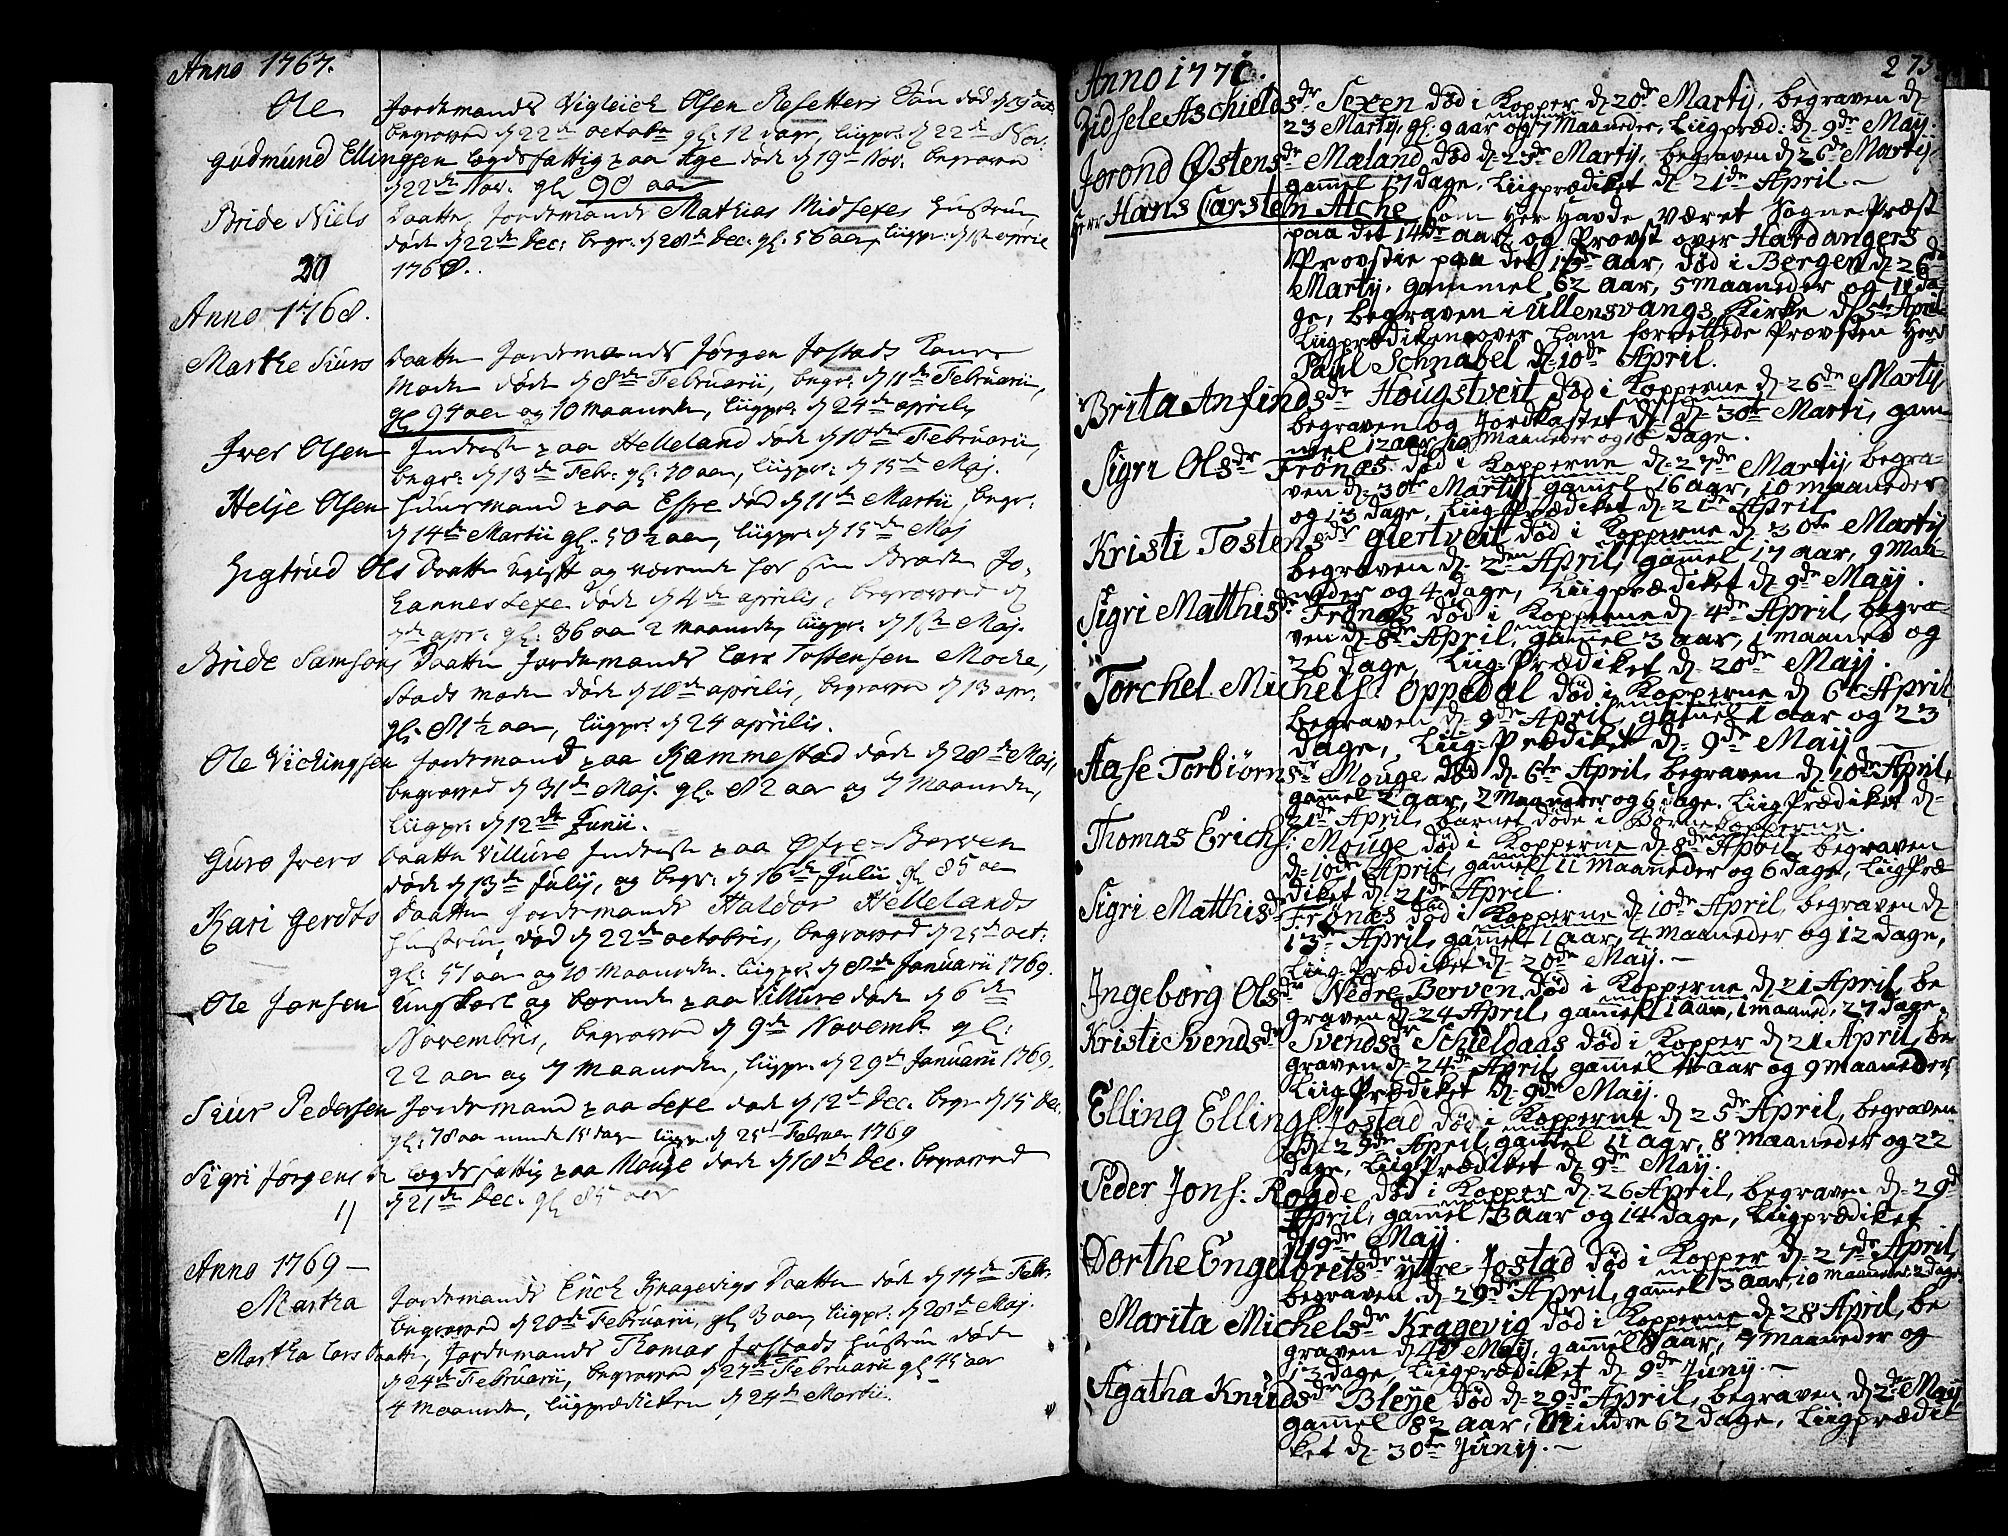 Anno 1767.
Ole Jordemands Vigleich Olsen Resetters Søn død d 19de octobr
begraved d 22de octobr gl: 12 dage, Liigpr: d 22de Nov:
Gudmund Ellingsen Legdsfattig paa Age døde d 19de Nov: begraven
d 22de Nov. gl 90 aar
Bride Niels Daatter, Jordemands Mathias Midsexes Hustrue
døde d 22de Dec: begr: d 28de Dec: gl: 56 aar, Liigpr: d 1ste april
1768.
20
Anno 1768.
Marthe Siurs Daatter Jordemands Jørgen Jostads Kones
Moder døde d 8de Februarii, begr: d 11de Februarii,
gl. 94 aar og 10 Maaneder, Liigpr: d 24de aprilis
Iver Olsen Inderst paa Helleland døde d 10de Februarii
begr: d 13de Febr: gl: 70 aar, Liigpr: d 15de Maj.
Helje Olsen Huusmand paa Espe død d 11te Martii begr:
d 14de Martii gl. 50 1/2 aar, Liigpr: d 15de Maj
Sigtrud Ols Daatter Ugift og værende hos sin Broder Jo-
hannes Sexe døde d 4de aprilis, begraved d
7de apr: gl: 36 aar 2 Maaneder, Liigpr: d 1ste Maj.
Bride Samsons Daatter Jordemands Lars Tostensen Moche-
Stads moder døde d 10de aprilis, begraven d 13 apr:
gl: 81 1/2 aar, Liigpr: d 24 aprilis.
Ole Vichingsen Jordemand paa Rammestad døde d 28de Maj,
begraved d 31de Maj. gl. 82 aar og 7 Maaneder,
Liigpr: d 12de Junii.
Guro Ivers Daatter Villure Inderst paa Øfre-Berven
døde d 13de Julij, og begr: d 16de Julii gl 85 aar
Kari Gerdts Daatter Jordemands Haldor Hellelands
Hustrue, død d 22de octobris, begraved d 25de oct:
gl: 51 aar og 10 Maaneder. Liigpr: d 8de Januarii 1769.
Ole Jonsen Ungkarl og boende paa Villure døde d 6de
Novembris, begraved d 9de Novemb: gl:
22 aar og 7 Maaneder, Liigpr: d 29de Januarii 1769.
Siurs Pedersen Jordemand paa Sexe døde d 12te Dec. begr: d 15 Dec.
gl: 78 aar minde 15 dage Liigpr: d 25de Februar 1769
Sigri Jørgens dr Legdsfattig paa Mouge døde d 18de Dec. begraved
d 21de Dec. gl 85 aar
11
Anno 1769
Martha Jordemands Erich Kragevigs Daatter døde d 14de Febr:
begraved d 20de Februarii, gl 3 aar, Liigpr: d 28de Maj.
Martha Lars Daatter, Jordemands Thomas Jostads Hustrue døde
d 24de Februarii, begraved d 27de Februarii gl 45 aar
4 Maaneder, Liigprædicken d 24de Martii.
Anno 1771. 275.
Zidsele Aschields dr Sexen død i Kopper d 20de Martij, begraven d
23 Martij, gl: 9 aar og 7 Maaneder, Liigpræd: d 9de Maij.
Jorond Østens dr Mæland død d 23de Martij, begraven d 26de Martij,
gammel 17 dage, Liigprædiket d 21de April.
Herr Hans Carsten Atche som Her Havde været Sogne-Præst
paa det 14de aar, og Provst over Hardangers
Provstie paa det 13de aar, død i Bergen d 26de
Martij. gammel 62 aar, 5 Maaneder og 11 da-
ge, begraven i Ullensvangs Kirke d 5te April
Liigprædikenen over ham forrettede Provsten Herr
Paul Schnabel d 10de April.
Brita Anfinds dr Hougstveit død i Kopperne d 26de Martij,
begraven og Jordkastet d 30te Marti, gam-
mel 12 aar 10 Maaneder og 16 dage.
Sigri Ols dr Frønæs død i Kopperne d 27de Martij, begra-
ven d 30te Martij gamel 16 aar, 10 maaneder
og 13 dage, Liig-Prædiket d 21de April
Kristi Tostens dr Giertveit død i Kopperne d 30te Martij
begraven d 2den April, gammel 17 aar, 9 Maa-
neder og 4 dage, Liigprædiket d 9de Maij.
Sigri Matthis dr Frønæs død i Kopperne d 4de April, begra-
ven d 8de April, gamel 3 aar, 1 maaned og
26 dage, Liig-Prædiket d 20de Maij.
Torchel Michels: Oppedal død i Kopperne d 6te April
begraven d 9de April, gamel 1 aar og 23
dage, Liig-Prædiket d 9de Maij
Aase Torbiørns dr Mouge død d 6te April, begraven d 10de April,
gamel 2 aar, 2 Maaneder og 6 dage. Liig Prædiket d
21de April, barnet døde i Børnekopperne.
Thomas Erichs: Mouge død i Kopperne d 8de April, begraven
d 10de April, gamel 11 Maaneder og 6 dage, Liig Præ-
diket d 21de April.
Sigri Matthis dr Frønæs død i Kopperne d 10de April, begraven d
13de April, gamel 1 aar, 4 Maaneder og 12 dage,
Liig-Prædiket d 20de Maij.
Ingeborg Ols dr Nedre Berven død i Kopperne d 21 April, be-
graven d 24 April, gamel 1 aar, 1 maaned, 27 dage.
Kristi Svends dr Svends dr Schieldaas død i Kopper d 21 April, be-
graven d 24de April, gamel 4 aar og 9 maaneder
Liig Prædiket d 9de Maij.
Elling Ellings: Jostad død i Kopperne d 25de April, begraven
d 29de April, gamel 11 aar, 8 maaneder og 22
dage, Liig Prædiket d 9de Maij.
Peder Jons: Rogde død i Kopper d 26 April, begraven d 29de
April, gamel 13 aar og 14 dage, Liigprædiket
d 19de Maij.
Dorthe Engelbrets dr yttre-Jostad død i Kopper d 27de April,
begraven d 29de April, gammel 3 aar, 10 maaneder 2 dage
Marita Michels dr Kragevig død i Kopperne d 28 April, be-
graven d 4de Maij, gamel 8 aar, 7 Maaneder og
12 dage, Liigprædiket d 9de Junij.
Agatha Knuds dr Bleye død d 29de April, begraven d 2de Maij
gamel 82 aar, Mindre 62 dage, Liigprædi-
ket d 30te Junij.